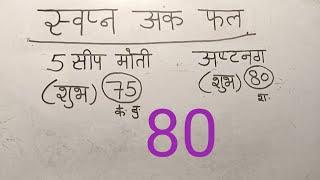 स्वप्न अंक फल
5 सीप मोती अष्टनग
(शुभ) 75 (शुभ) 80
के बु श.
80